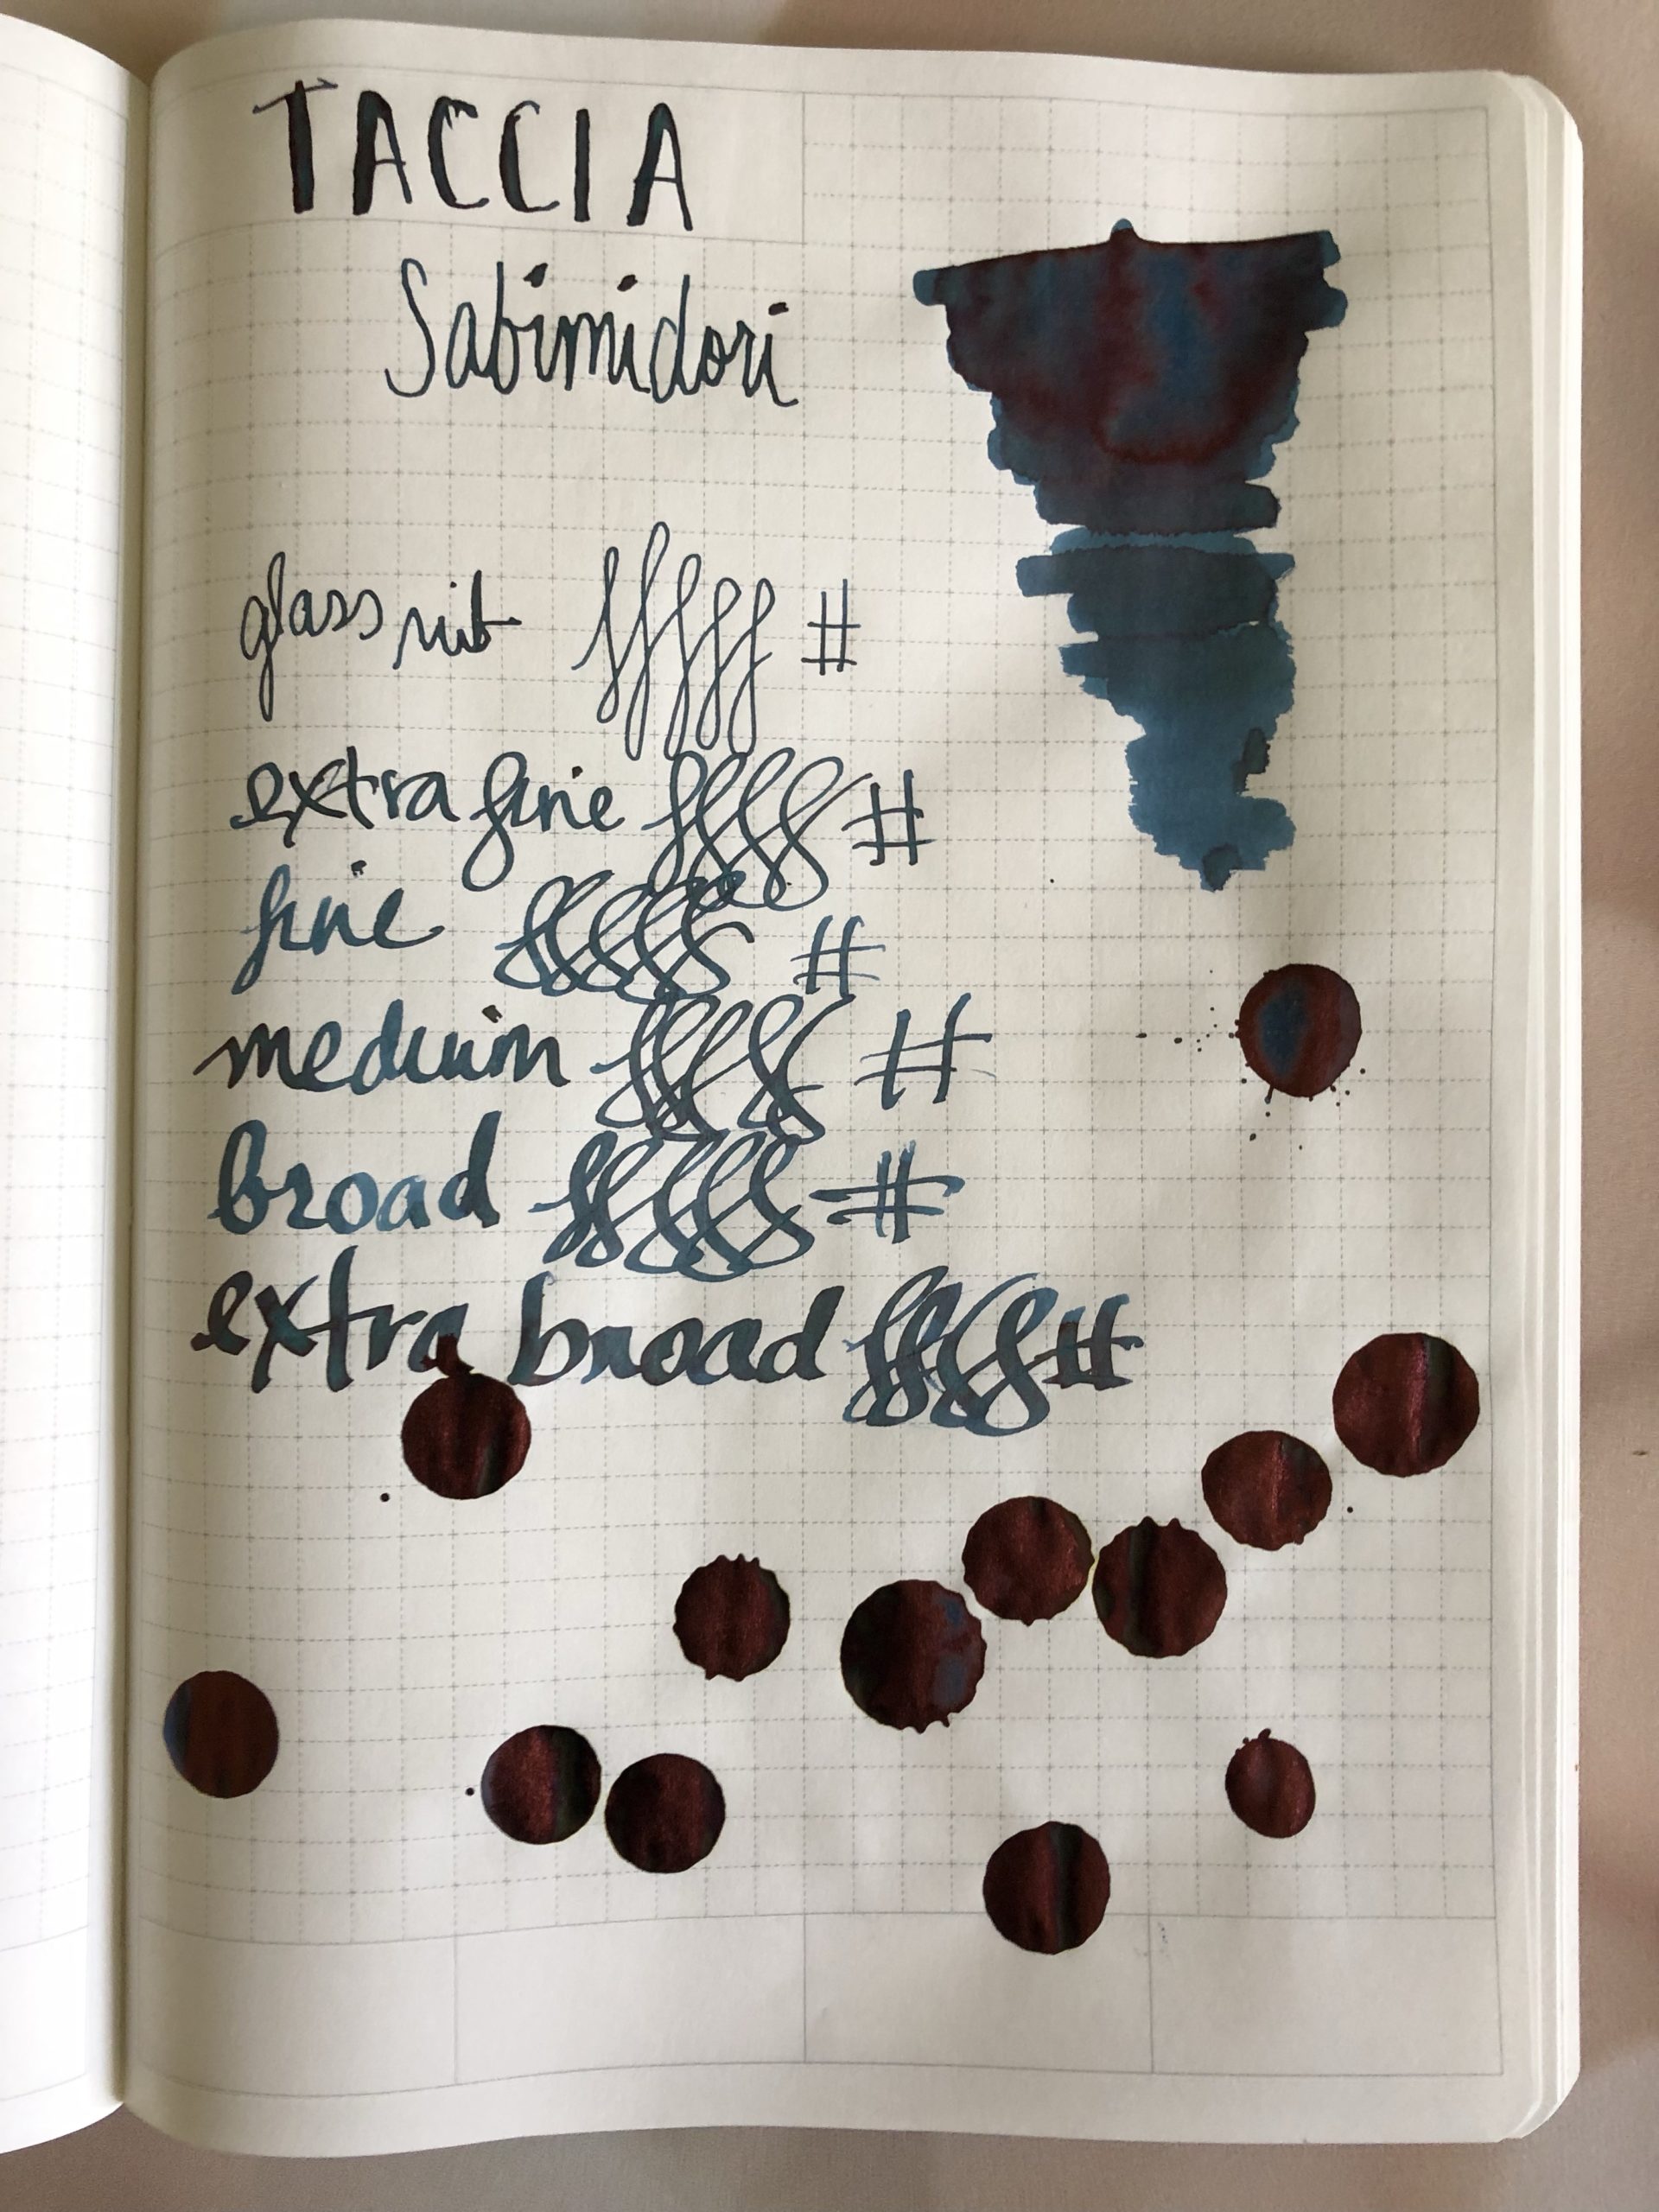 TACCIA
Sabimidori
glass nib #
extra fine #
fine #
medium #
broad #
extra broad #